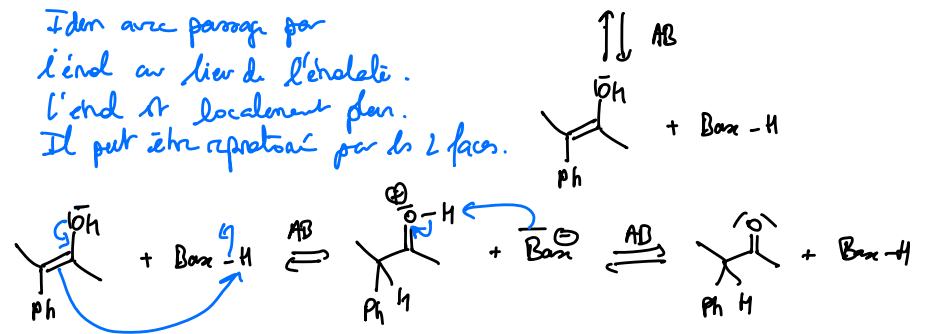 Idem avec passage par
l'énol au lieu de l'énolate.
L'énol est localement plan.
Il peut être reprotoné par les 2 faces.
AB
OH
+ Base-H
Ph
OH
+ Base-H
AB
⊕
O-H
+ Base⊖
AB
O
+ Base-H
Ph
Ph H
Ph H